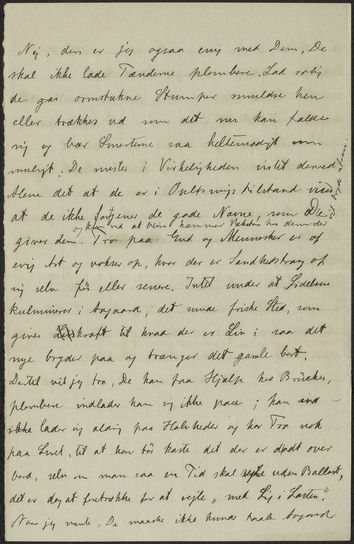 Nej, deri er jeg ogsaa enig med Dem, De
skal ikke lade Tænderne plombere. Lad rolig
de gas ormstukne Stumper smuldre hen
eller trækkes ud som det nu kan falde
sig og bær Smerterne saa heltemodigt som
muligt. De mister i Virkeligheden intet derved
Alene det at de er i Opløsnings tilstand viser
at de ikke fortjener de gode Navne, som De
giver dem. Tro paa Gud og Mennesker er af
evig Art og vokser op, hvor der er Sandhedstrang af
sig selv før eller senere. Intet under at Lidelsen
kulminerer i Aagaard, det sunde friske Sted, som
giver Kraft til hvad der er Liv i saa det
nye bryder paa og trænger det gamle bort.
Dertil vil jeg tro, De kan faa Hjælp hos Brücker,
plombere indlader han sig ikke paa; han
ikke lader sig af paa Halvheder og har Tro nok
paa Livet, til at han tør kaste det der er dødt over
bord, selv om man saa en Tid skal sejle uden Ballast,
det er dog at foretrække for at sejle "med Lig i Lasten".
Naar jeg mente, De maaske ikke kunde taale Aagaard